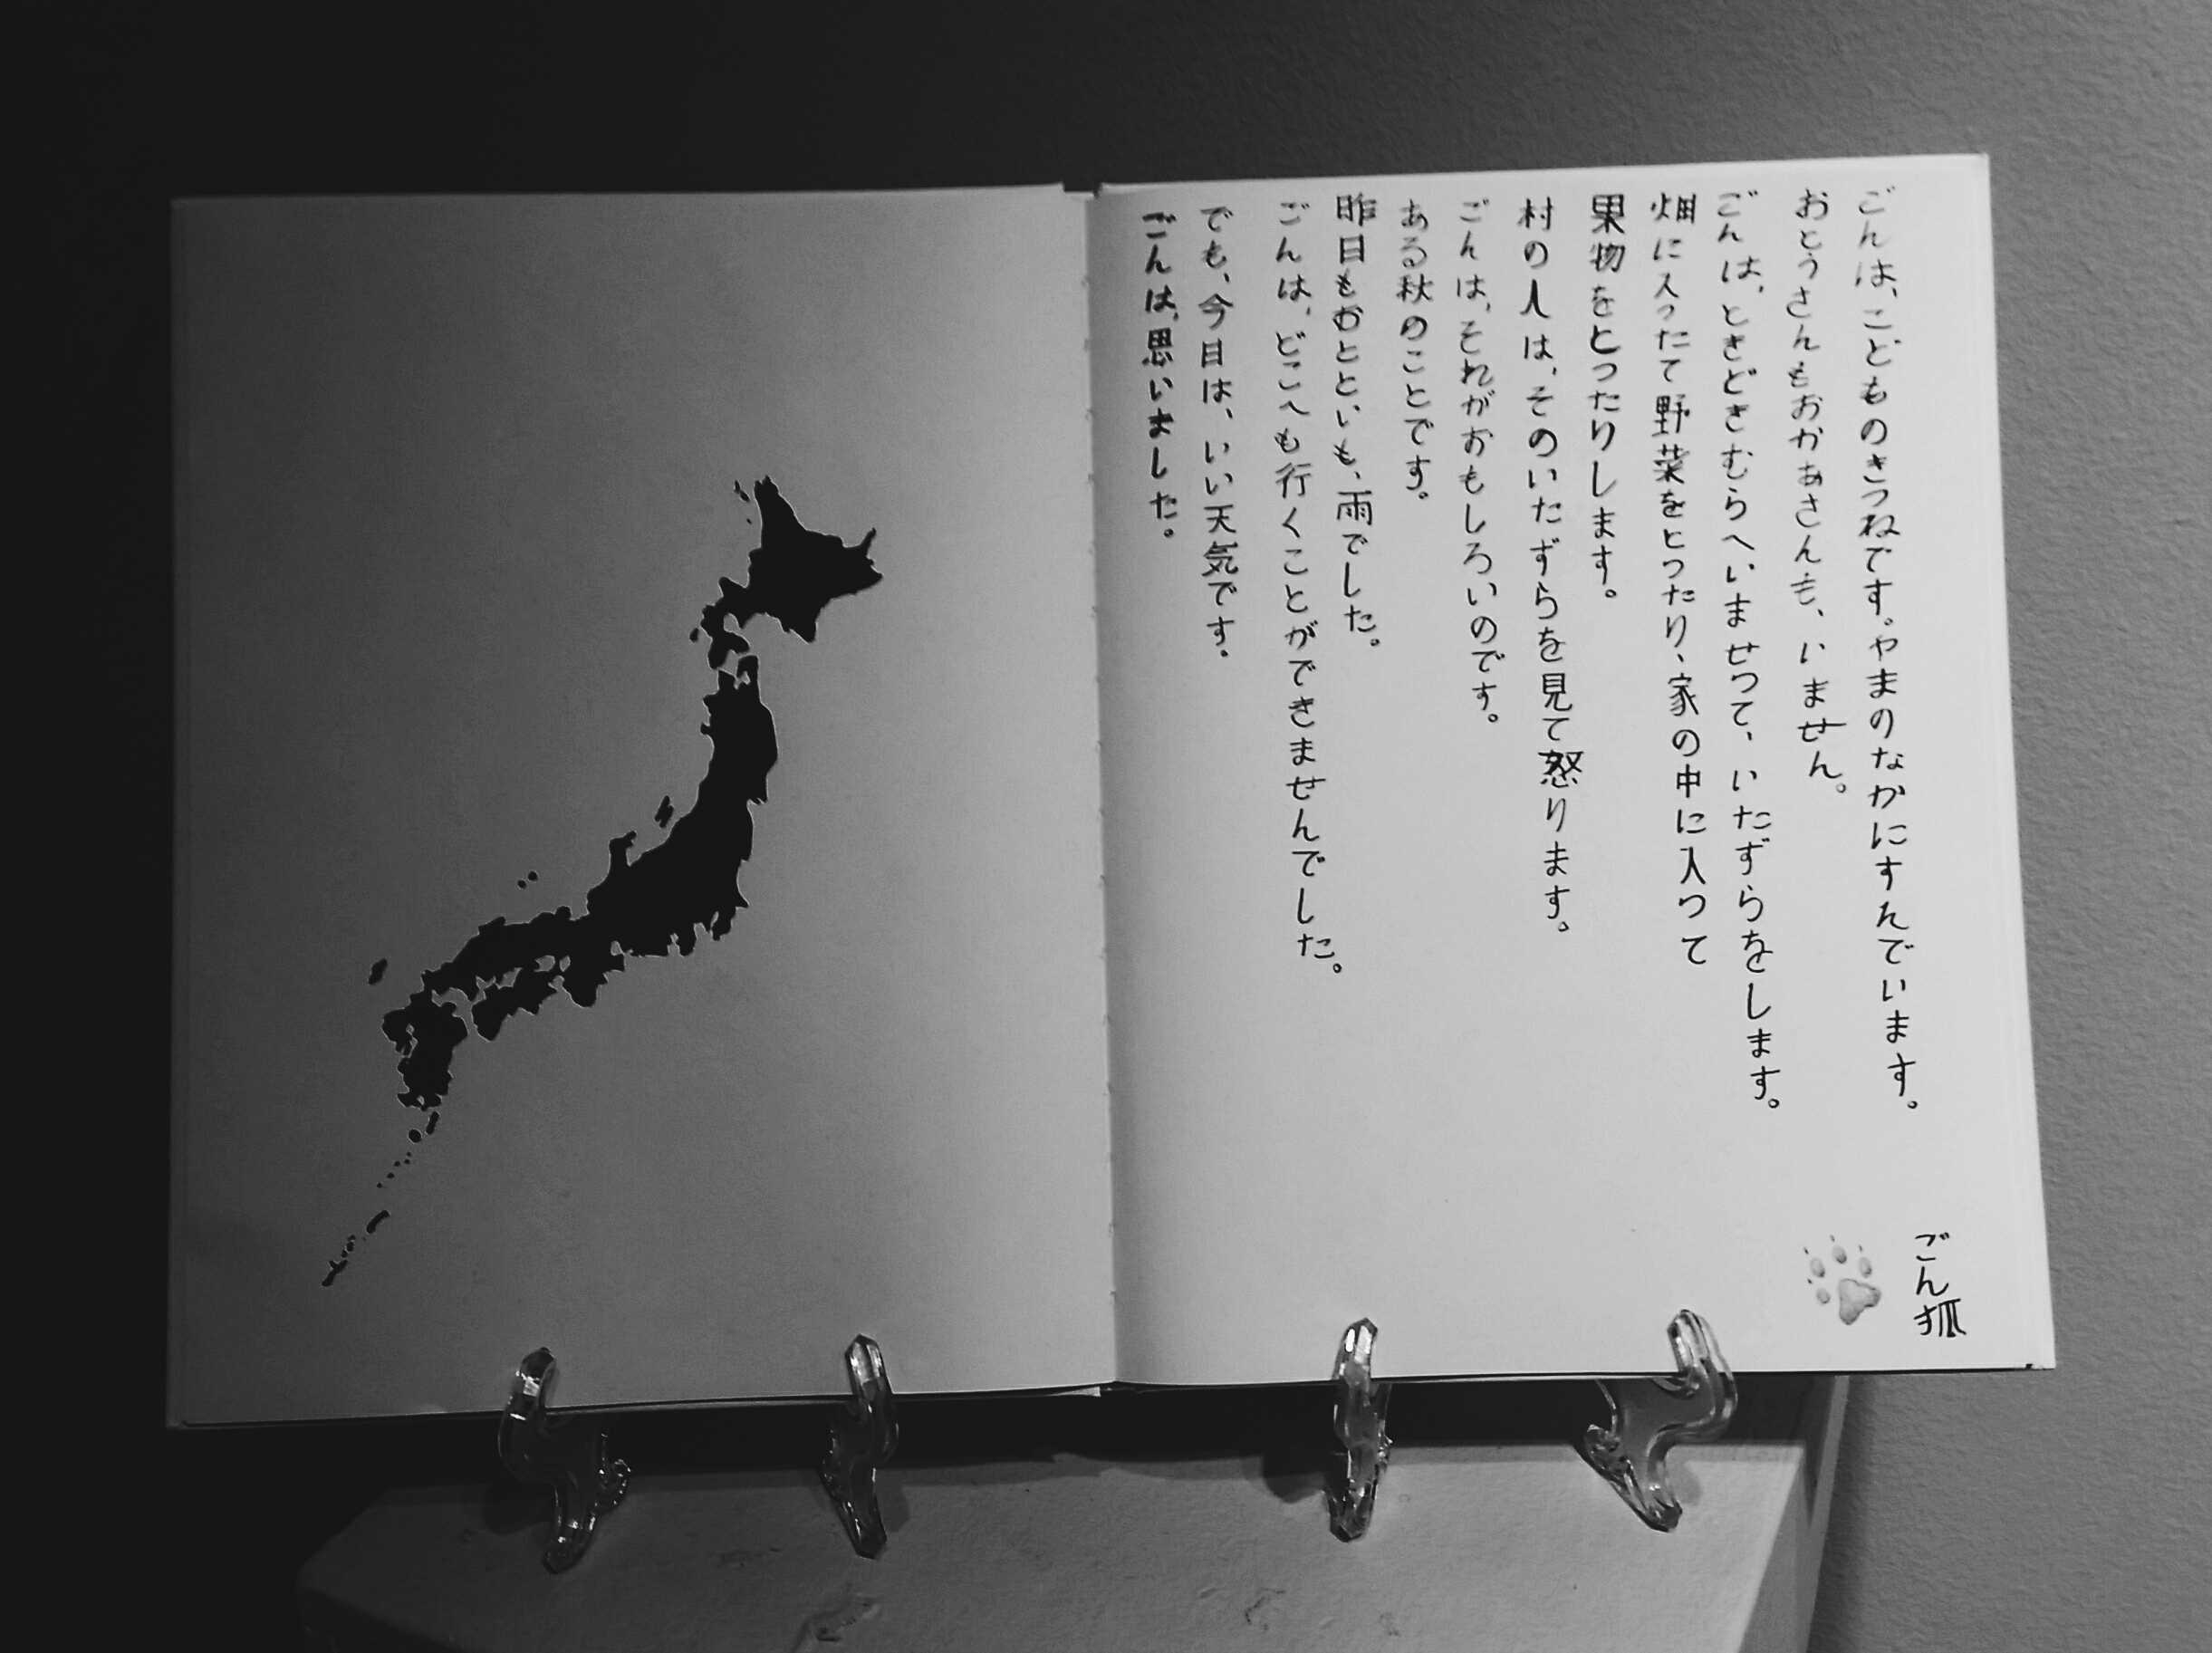 ごんは、こどものきつねです。やまのなかにすんでいます。
おとうさんもおかあさんも、いません。
ごんは、ときどきむらへいませって、いたずらをします。
畑に入ったて野菜をとったり、家の中に入って
果物をとったりします。
村の人は、そのいたずらを見て怒ります。
ごんは、それがおもしろいのです。
ある秋のことです。
昨日もおとといも、雨でした。
ごんは、どこへも行くことができませんでした。
でも、今日は、いい天気です。
ごんは、思いました。
ごん狐